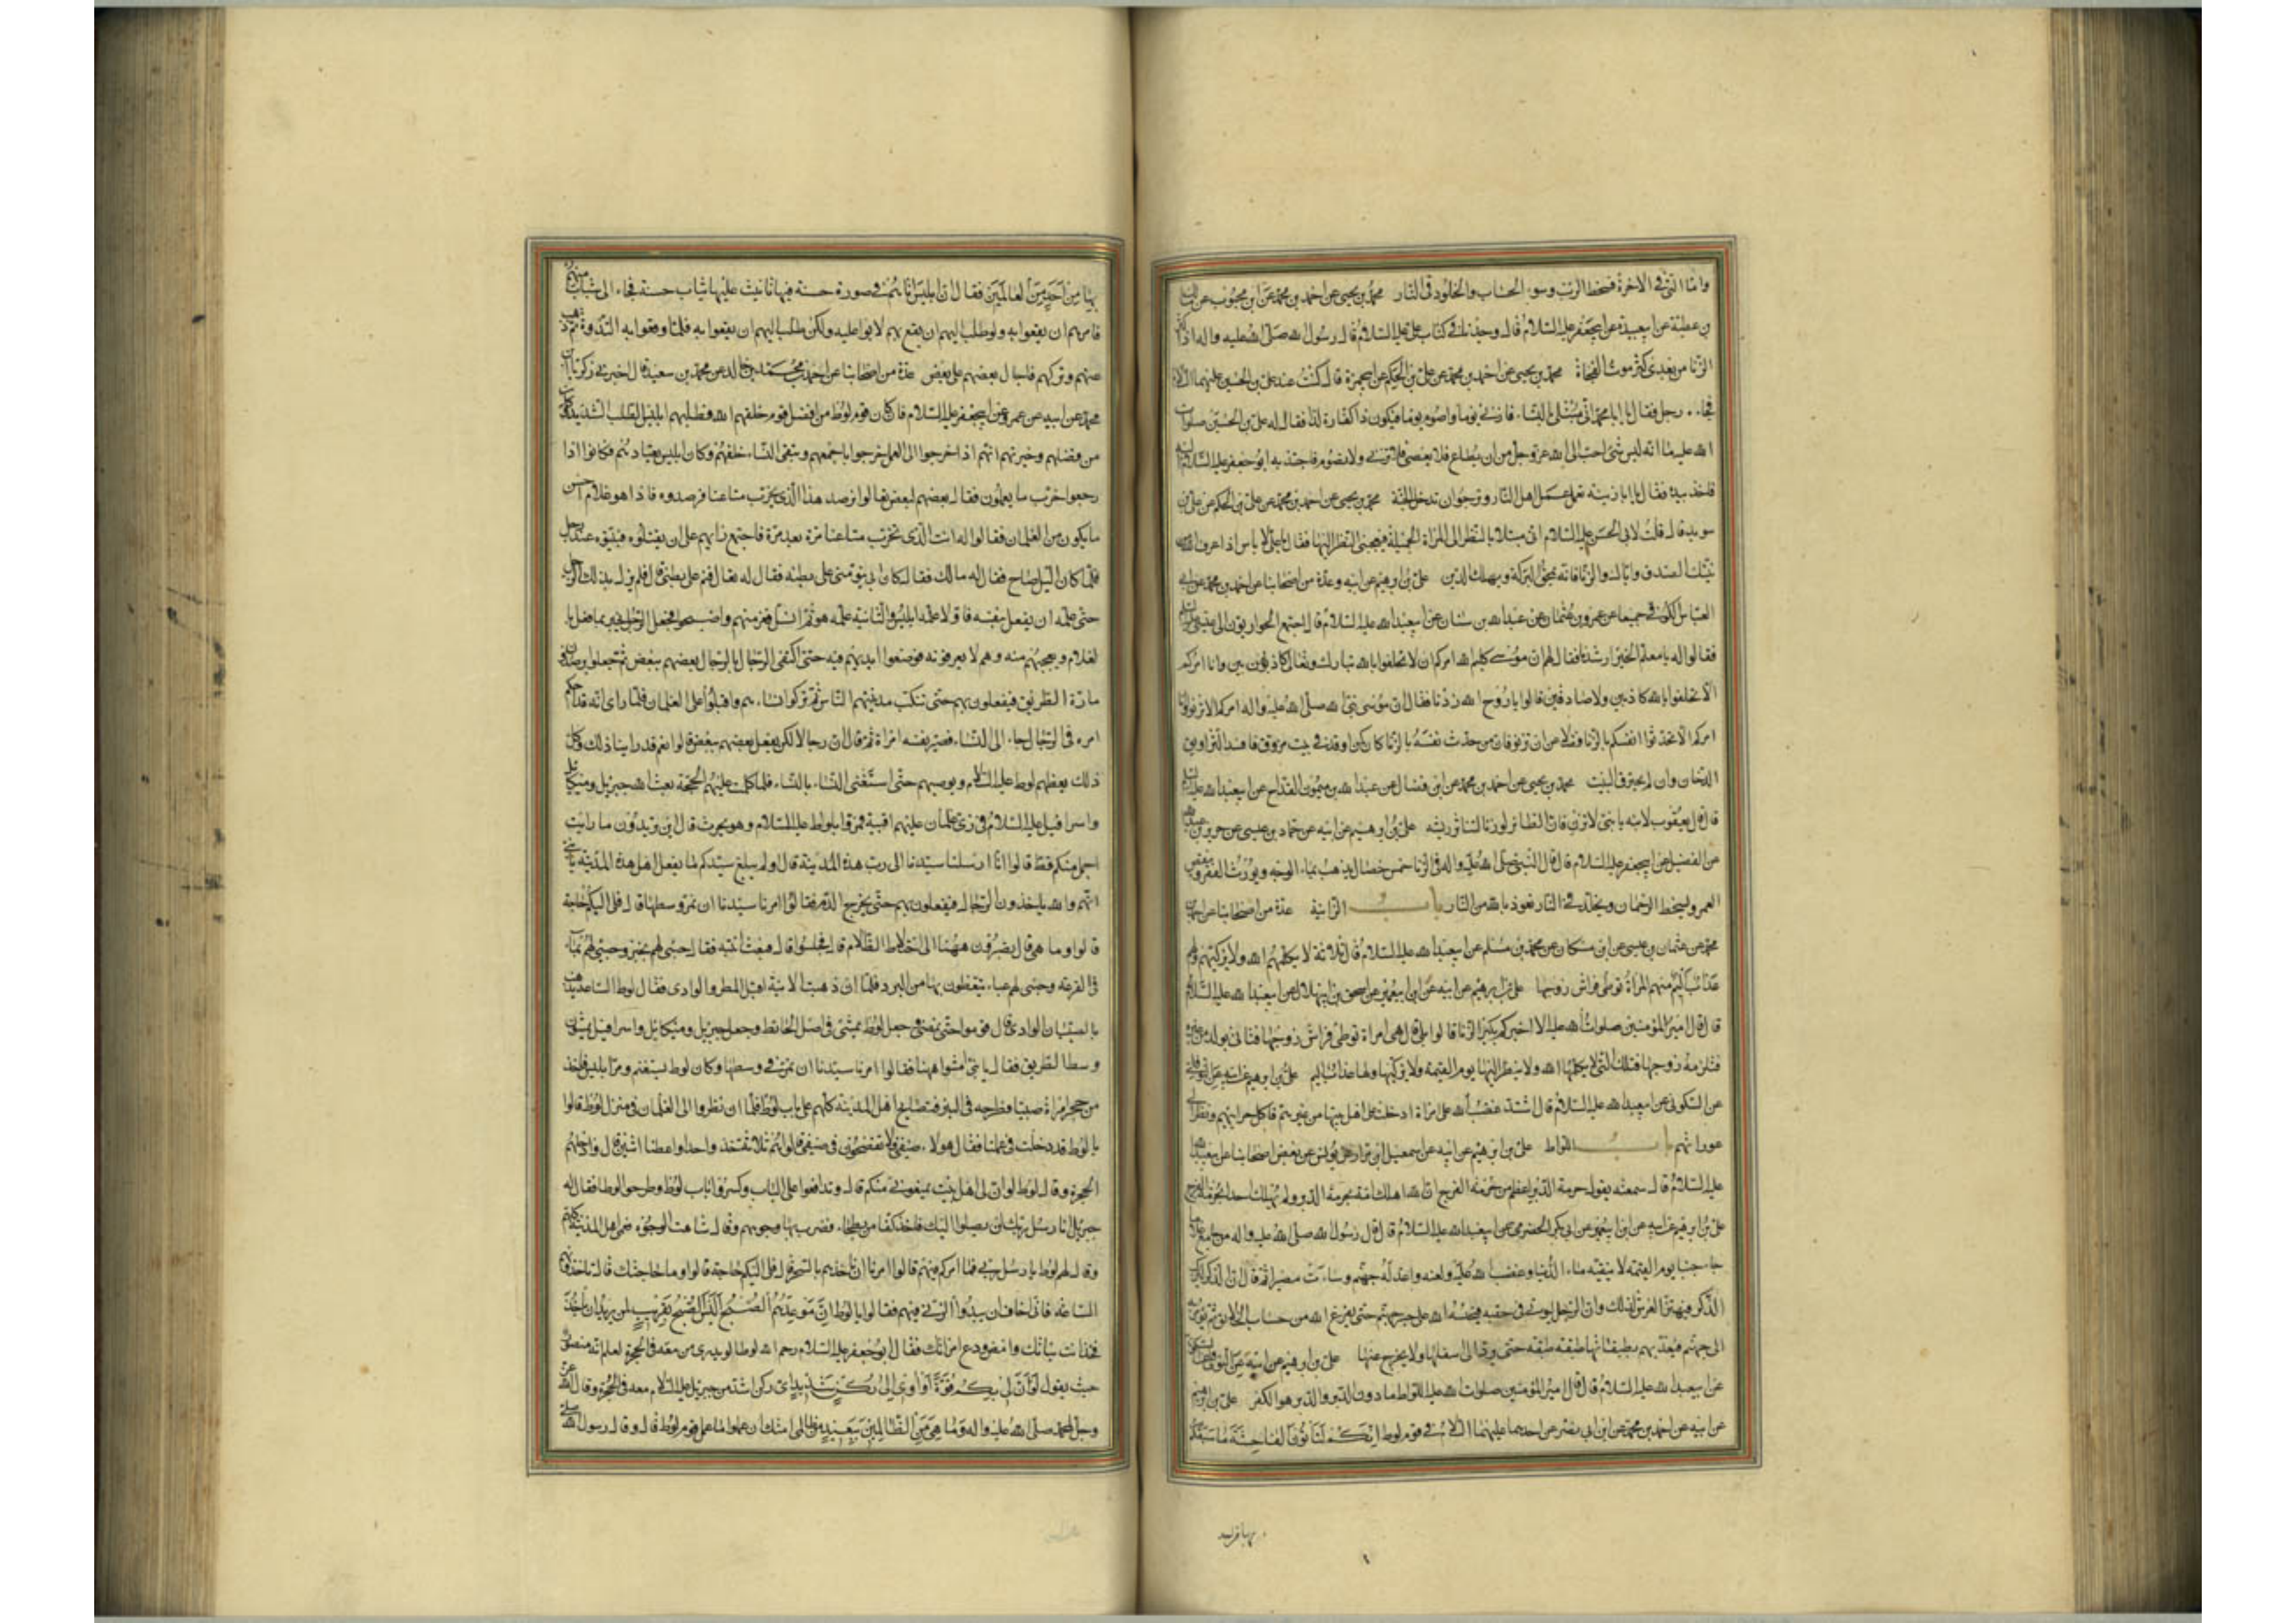 واما التي في الاخرة فسخط الرب وسوء الحساب والخلود في النار محمد بن يحيى عن احمد بن محمد عن ابن محبوب عن مالك
بن عطية عن ابي عبيدة عن ابي جعفر عليه السلام قال وجدنا في كتاب علي عليه السلام قال رسول الله صلى الله عليه واله اذا كثر
الزنا من بعدي كثر موت الفجأة محمد بن يحيى عن احمد بن محمد عن علي بن الحكم عن ابي حمزة قال كنت عند علي بن الحسين عليهما السلام
فجاءه رجل فقال يا ابا محمد اني مبتلى بالنساء فازني يوما واصوم يوما فيكون ذا كفارة لذا فقال له علي بن الحسين صلوات
الله عليهما انه ليس شئ احب الى الله عز وجل من ان يطاع فلا يعصى فلا تزني ولا تصوم فاجتذبه ابو جعفر عليه السلام اليه
فاخذ بيده فقال يا ابا زنه تعمل عمل اهل النار وترجو ان تدخل الجنة محمد بن يحيى عن احمد بن محمد عن علي بن الحكم عن علي بن
سويد قال قلت لابي الحسن عليه السلام اني مبتلا بالنظر الى المراة الجميلة فيعجبني النظر اليها فقال يا علي لا باس اذا عرف الله من
نيتك الصدق واياك والزنا فانه يمحق البركة ويهلك الدين علي بن ابرهيم عن ابيه وعدة من اصحابنا عن احمد بن محمد عن ابي
العباس الكوفي جميعا عن عمرو بن عثمان عن عبد الله بن سنان عن ابي عبد الله عليه السلام قال اجتمع الحواريون الى عيسى عليه السلام
فقالوا له يا معلم الخير ارشدنا فقال لهم ان موسى كليم الله امركم ان لا تحلفوا بالله تبارك وتعالى كاذبين وانا امركم
الا تحلفوا بالله كاذبين ولا صادقين قالوا يا روح الله زدنا فقال ان موسى نبي الله صلى الله عليه واله امركم الا تزنوا وانا
امركم الا تحدثوا انفسكم بالزنا فضلا عن ان تزنوا فان من حدث نفسه بالزنا كان كمن اوقد في بيت مزوق فافسد التزاويق
الدخان وان لم يحترق البيت محمد بن يحيى عن احمد بن محمد عن ابن فضال عن عبد الله بن ميمون القداح عن ابي عبد الله عليه السلام
قال قال يعقوب لابنه يا بني لا تزن فان الطائر لو زنا لتناثر ريشه علي بن ابرهيم عن ابيه عن حماد بن عيسى عن حريز بن عبد الله
عن الفضيل عن ابي جعفر عليه السلام قال قال النبي صلى الله عليه واله في الزنا خمس خصال يذهب بماء الوجه ويورث الفقر وينقص
العمر ويسخط الرحمان ويخلد في النار نعوذ بالله من النار باب الزانية عدة من اصحابنا عن احمد بن
محمد عن عثمان بن عيسى عن ابن مسكان عن محمد بن مسلم عن ابي عبد الله عليه السلام قال ثلاثة لا يكلمهم الله ولا يزكيهم ولهم
عذاب اليم منهم المراة توطي فراش زوجها علي بن ابرهيم عن ابيه عن ابن ابي عمير عن اسحق بن ابي هلال عن ابي عبد الله عليه السلام
قال قال امير المؤمنين صلوات الله عليه الا اخبركم بكبر الزنا قالوا بلى قال هي امراة توطي فراش زوجها فتاتي بولد من غيره
فتلزمه زوجها فتلك التي لا يكلمها الله ولا ينظر اليها يوم القيمة ولا يزكيها ولها عذاب اليم علي بن ابرهيم عن ابيه عن النوفلي
عن السكوني عن ابي عبد الله عليه السلام قال اشتد غضب الله على امراة ادخلت على اهل بيتها من غيرهم فاكل حرايبهم ونظر الى
عوراتهم باب اللواط علي بن ابرهيم عن ابيه عن اسمعيل بن مرار عن يونس عن بعض اصحابنا عن ابي عبد الله
عليه السلام قال سمعته يقول حرمة الدبر اعظم من حرمة الفرج ان الله اهلك امة بحرمة الدبر ولم يهلك احدا بحرمة الفرج
علي بن ابرهيم عن ابيه عن ابن ابي عمير عن ابي بكر الحضرمي عن ابي عبد الله عليه السلام قال قال رسول الله صلى الله عليه واله من جامع غلاما
جاء جنبا يوم القيمة لا ينقيه ماء الدنيا وغضب الله عليه ولعنه واعد له جهنم وساءت مصيرا ثم قال ان الذكر ليركب
الذكر فيهتز العرش لذلك وان الرجل ليؤتى في حقبه فيحبسه الله على جسر جهنم حتى يفرغ الله من حساب الخلايق ثم يؤمر به
الى جهنم فيعذب بطبقاتها طبقة طبقة حتى يرد الى اسفلها ولا يخرج منها علي بن ابرهيم عن ابيه عن النوفلي عن السكوني
عن ابي عبد الله عليه السلام قال قال امير المؤمنين صلوات الله عليه اللواط ما دون الدبر والدبر هو الكفر علي بن ابرهيم
عن ابيه عن احمد بن محمد عن ابن ابي نصر عن احدهما عليهما السلام في قوم لوط انكم لتاتون الفاحشة ما سبقكم
بها من احد من العالمين فقال ان ابليس اتاهم في صورة حسنة فيها تانيث عليها ثياب حسنة فجاء الى شباب منهم
فامرهم ان يقعوا به ولو طلب اليهم ان يقع بهم لابوا عليه ولكن طلب اليهم ان يقعوا به فلما وقعوا به التذوه ثم ذهب
عنهم وتركهم فاحال بعضهم على بعض عدة من اصحابنا عن احمد بن محمد بن خالد عن محمد بن سعيد قال اخبرني زكريا بن
محمد عن ابيه عن عمرو عن ابي جعفر عليه السلام قال كان قوم لوط من افضل قوم خلقهم الله فطلبهم ابليس الطلب الشديد وكان
من فضلهم وخيرتهم انهم اذا خرجوا الى العمل خرجوا باجمعهم وتبقى النساء خلفهم وكان ابليس يعتادهم فكانوا اذا
رجعوا خرب ما يعملون فقال بعضهم لبعض تعالوا نرصد هذا الذي يخرب متاعنا فرصدوه فاذا هو غلام احسن
ما يكون من الغلمان فقالوا له انت الذي تخرب متاعنا مرة بعد مرة فاجتمع رايهم على ان يقتلوه فبيتوه عند رجل
فلما كان الليل صاح فقال له مالك فقال كان ابي ينومني على بطنه فقال له تعال فنم على بطني قال فلم يزل يدلك الرجل
حتى علمه ان يفعل بنفسه فاولا علمه ابليس والثانية علمه هو ثم انسل ففر منهم واصبحوا فجعل الرجل يخبر بما فعل با
لغلام ويعجبهم منه وهم لا يعرفونه فوضعوا ايديهم فيه حتى اكتفى الرجال بالرجال بعضهم ببعض ثم جعلوا يرصدون
مارة الطريق فيفعلون بهم حتى تنكب مدينتهم الناس ثم تركوا نساءهم واقبلوا على الغلمان فلما راى انه قد احكم
امره في الرجال جاء الى النساء فصير نفسه امراة ثم قال ان رجالكن يفعل بعضهم ببعض قالوا نعم قد راينا ذلك وكل
ذلك يعظهم لوط عليه السلام ويوصيهم حتى استغنى النساء بالنساء فلما كملت عليهم الحجة بعث الله جبرئيل وميكائيل
واسرافيل عليه السلام في زي غلمان عليهم اقبية فمروا بلوط عليه السلام وهو يحرث قال اين تريدون ما رايت
اجمل منكم قط قالوا انا ارسلنا سيدنا الى رب هذه المدينة قال ولم يبلغ سيدكم ما يفعل اهل هذه المدينة يا بني
انهم والله ياخذون الرجال فيفعلون بهم حتى يخرج الدم فقالوا امرنا سيدنا ان نمر وسطها قال فلي اليكم حاجة
قالوا وما هي قال تصبرون ههنا الى اختلاط الظلام قال فجلسوا قال فبعث ابنته فقال جيئي لهم بخبز وجيئي لهم بماء
في القرعة وجيئي لهم عباء يتغطون بها من البرد فلما ان ذهبت الابنة اقبل المطر والوادي فقال لوط الساعة يذهب
بالصبيان الوادي قال قوموا حتى نمضي وجعل لوط يمشي في اصل الحائط وجعل جبرئيل وميكائيل واسرافيل يمشون
وسط الطريق فقال يا بني امشوا ههنا فقالوا امرنا سيدنا ان نمر في وسطها وكان لوط يستغنم ومر ابليس فاخذ
من حجر امراة صبيا فطرحه في البئر فتصايح اهل المدينة كلهم على باب لوط فلما ان نظروا الى الغلمان في منزل لوط قالوا
يا لوط قد دخلت في عملنا فقال هولاء ضيفي فلا تفضحون في ضيفي قالوا هم ثلاثة خذ واحدا واعطنا اثنين قال وادخلهم
الحجرة وقال لوط لو ان لي اهل بيت يمنعوني منكم قال وتدافعوا على الباب وكسروا باب لوط وطرحوا لوطا فقال له
جبرئيل انا رسل ربك لن يصلوا اليك فاخذ كفا من بطحاء فضرب بها وجوههم وقال شاهت الوجوه فعمي اهل المدينة كلهم
وقال لهم لوط يا رسل ربي فما امركم فيهم قالوا امرنا ان ناخذهم بالسحر قال فلي اليكم حاجة قالوا وما حاجتك قال تاخذونهم
الساعة فاني اخاف ان يبدو لربي فيهم فقالوا يا لوط ان موعدهم الصبح اليس الصبح بقريب لمن يريد ان ياخذ
فخذ انت بناتك وامض ودع امراتك فقال ابو جعفر عليه السلام رحم الله لوطا لو يدري من معه في الحجرة لعلم انه منصور
حيث يقول لو ان لي بكم قوة او اوي الى ركن شديد اي ركن اشد من جبرئيل عليه السلام معه في الحجرة وقال الله عز
وجل لمحمد صلى الله عليه واله وما هي من الظالمين ببعيد من ظالمي امتك ان عملوا ما عمل قوم لوط قال وقال رسول الله صلى
بها من احد